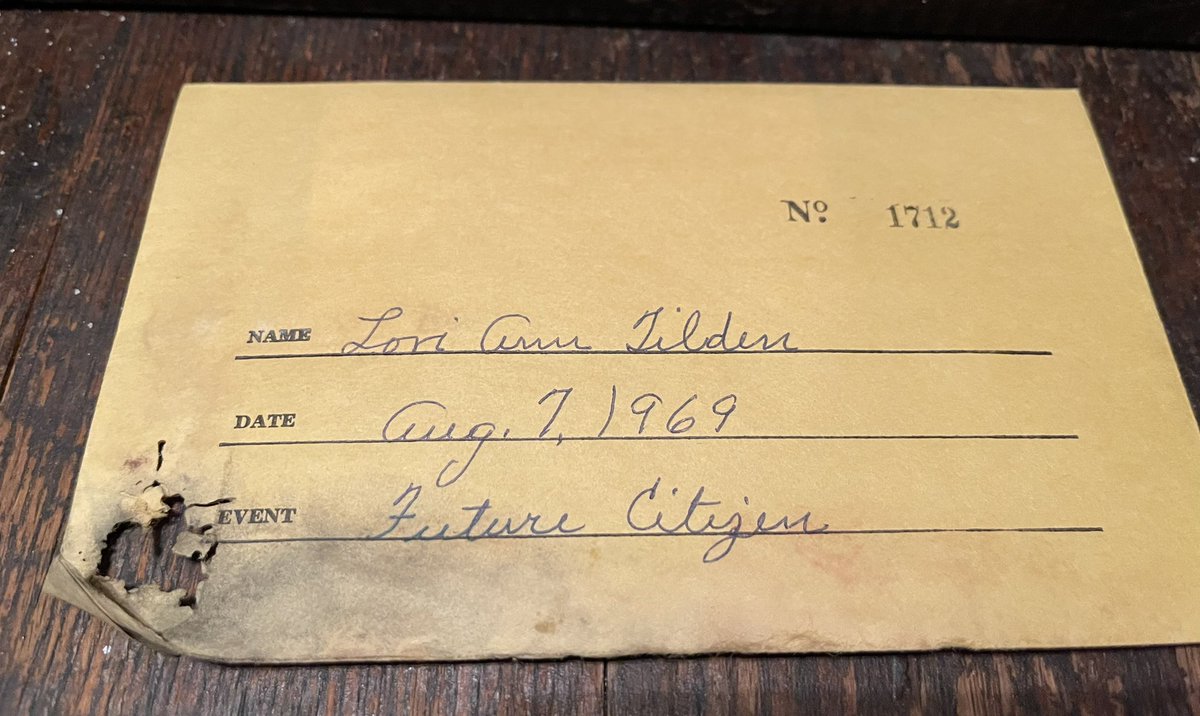 Nº 1712
NAME Lori Ann Tilden
DATE Aug. 7, 1969
EVENT Future Citizen